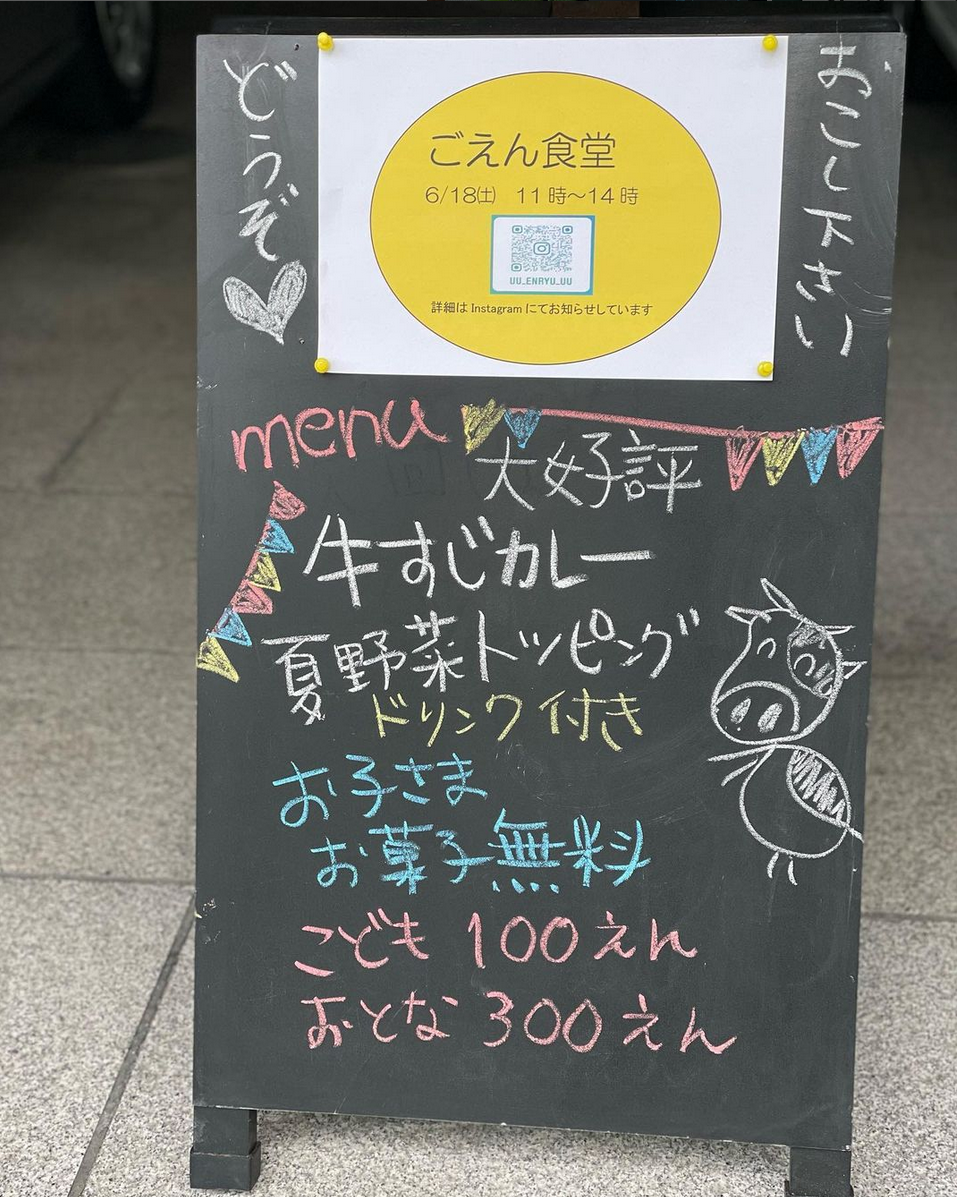 おこし下さい
どうぞ
ごえん食堂
6/18㈯ 11時〜14時
UU_ENRYU_UU
詳細は Instagram にてお知らせしています
menu
大好評
牛すじカレー
夏野菜トッピング
ドリンク付き
お子さま
お菓子無料
こども 100えん
おとな 300えん